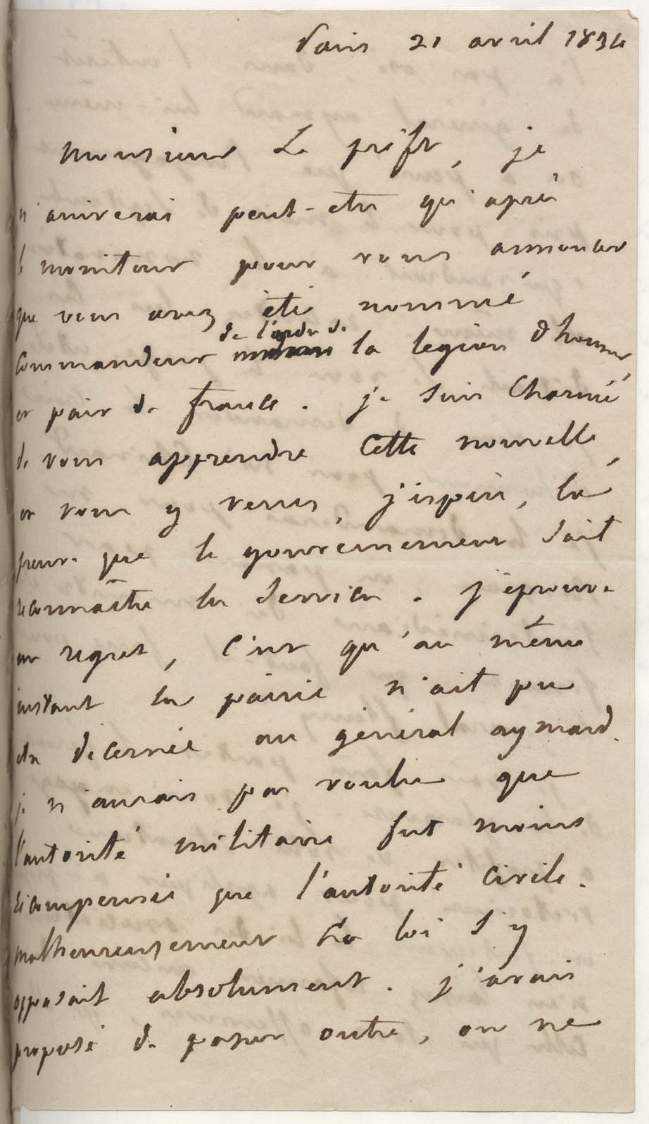 Paris 21 avril 1834
Monsieur Le préfet, je
n'arriverai peut-etre qu'après
le moniteur pour vous annoncer
que vous avez été nommé
commandeur de l'ordre de la legion d'honneur,
et pair de france. je suis charmé
de vous apprendre cette nouvelle,
et vous y verrez, j'espère, la
preuve que le gouvernement sait
reconnaître les services. j'éprouve
un regret, c'est qu'au même
instant la pairie n'ait pu
etre décernée au général aymard.
je n'aurais pas voulu que
l'autorité militaire fut moins
récompensée que l'autorité civile.
malheureusement la loi s'y
opposait absolument. j'avais
proposé de passer outre, on ne